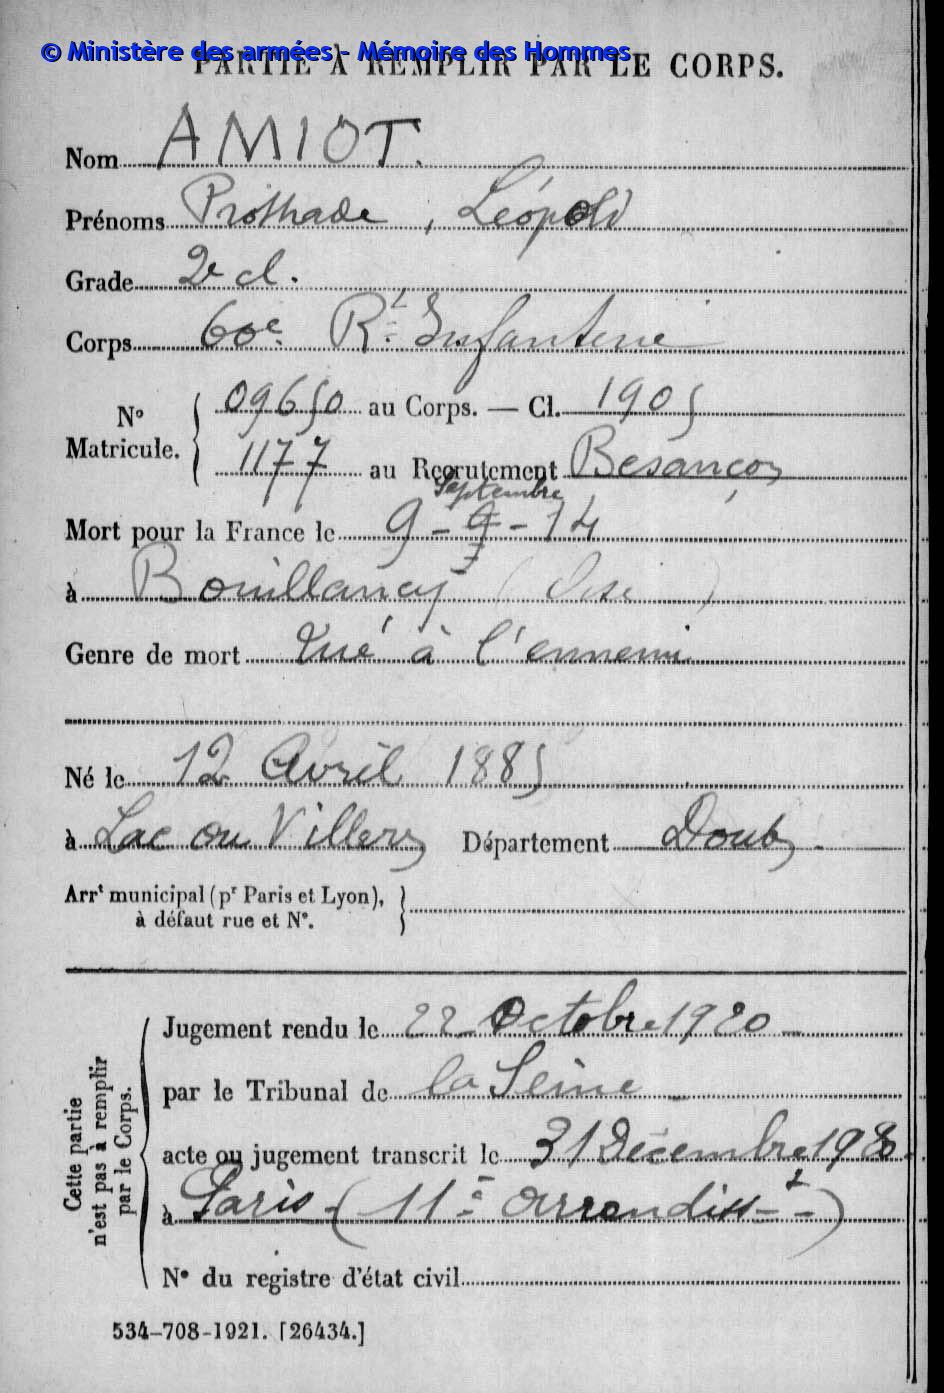 © Ministère des armées - Mémoire des Hommes
PARTIE À REMPLIR PAR LE CORPS.
Nom AMIOT.
Prénoms Prothade, Léopold
Grade 2e cl.
Corps 60e Rt Infanterie
N° Matricule. 09650 au Corps. — Cl. 1905
1177 au Recrutement Besançon
Septembre
Mort pour la France le 9-9-14
à Bouillancy (Oise)
Genre de mort tué à l'ennemi
Né le 12 Avril 1885
à Lac ou Villers Département Doubs.
Arrt municipal (pr Paris et Lyon),
à défaut rue et N°.
Cette partie n'est pas à remplir par le Corps.
Jugement rendu le 22 Octobre 1920
par le Tribunal de la Seine
acte ou jugement transcrit le 31 Décembre 1920
à Paris (11e arrondisst)
N° du registre d'état civil
534-708-1921. [26434.]